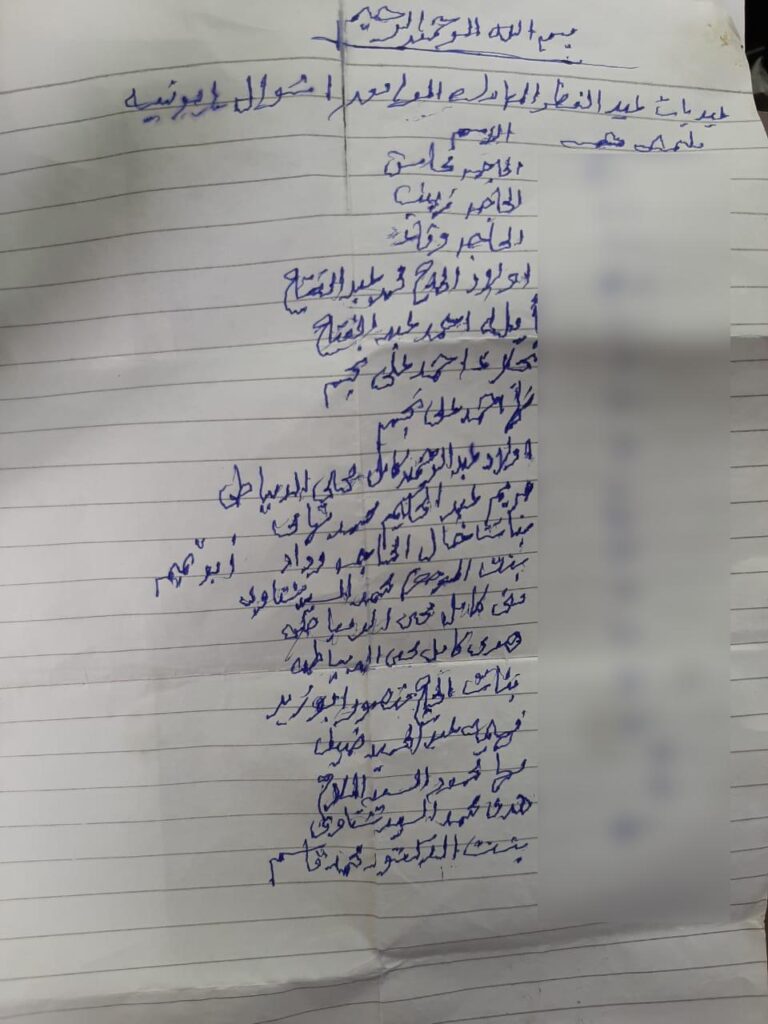 بسم الله الرحمن الرحيم
عيديات عيد الفطر المبارك الموافق ١ شوال يونيه
مليم جنيه الاسم
الحاجه محاسن
الحاجه زينب
الحاجه
اولاد الحاج محمد عبد الفتاح
احمد عبد الفتاح
نجلاء احمد على نجيم
احمد على نجيم
اولاد عبد الرحمن كامل محى الدمياطى
مريم عبد الحليم محمد
بنات خال الحاجه وداد
بنت المرحوم محمد السيد شتاوى
منى كامل محى الدمياطى
هدى كامل محى الدمياطى
بنات الحاج منصور ابو زيد
فهمى عبد الحميد
محمود السيد الملاح
هدى محمد السيد شتاوى
بنت الدكتور محمد قاسم